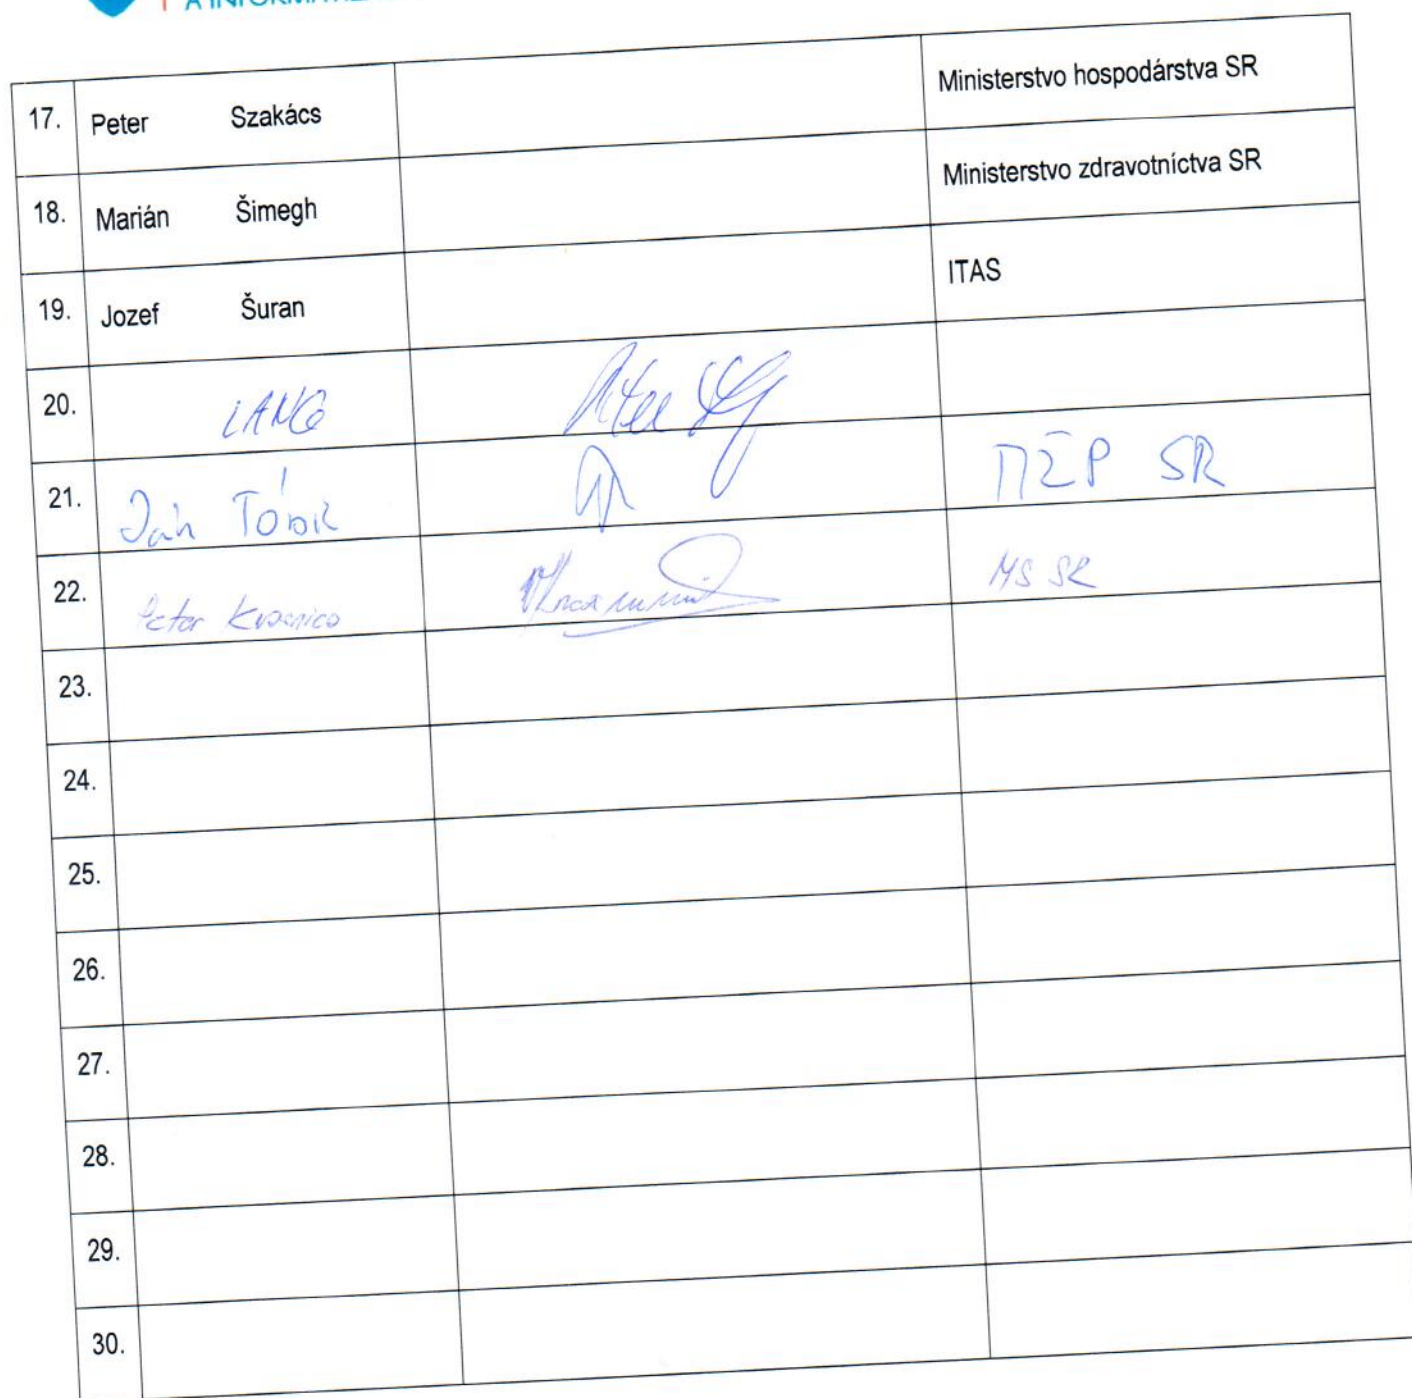 17. Peter Szakács Ministerstvo hospodárstva SR
18. Marián Šimegh Ministerstvo zdravotníctva SR
19. Jozef Šuran ITAS
20. LANG
21. Ján Tóbik MŽP SR
22. Peter MS SR
23.
24.
25.
26.
27.
28.
29.
30.